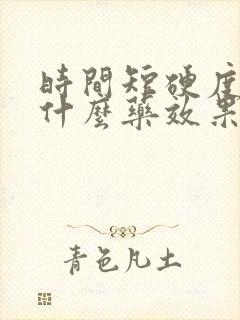 時間短硬度
什麼藥效果
青色凡土